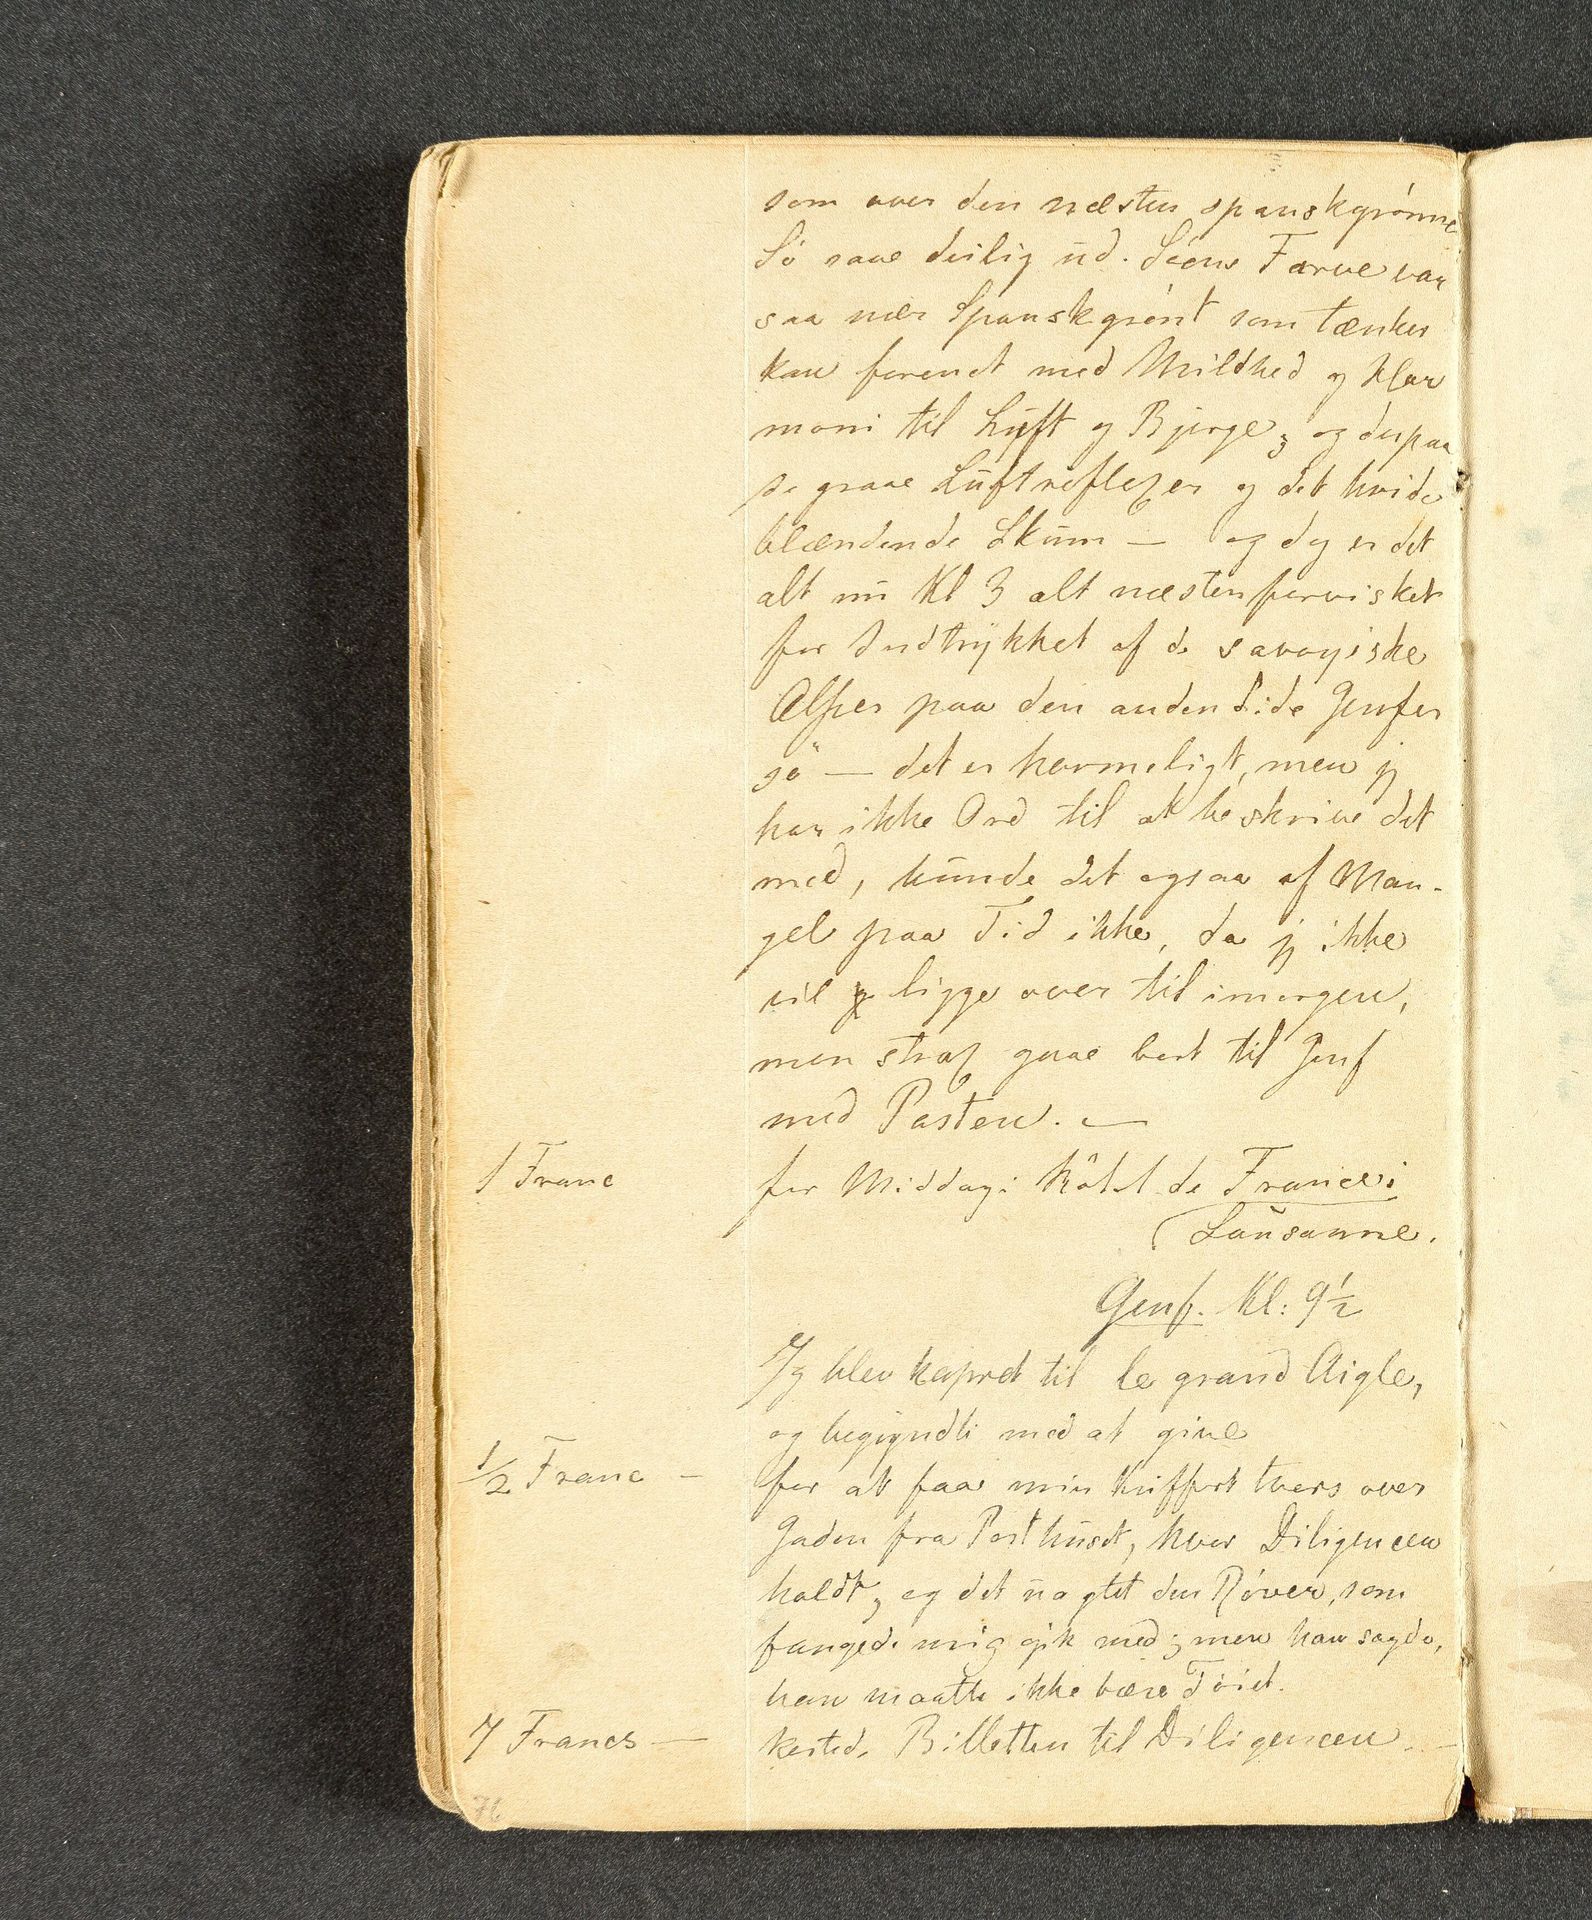 som over den næsten spanskgrønne
Sö saae deilig ud. Söens Farve var
saa nær Spanskgrönt som tænkes
kan forenet med Mildhed og Har
moni til Luft og Bjerge, og derpaa
de graae Luftreflexer og det hvide
blændende Skum — og dog er det
alt nu Kl 3 alt næsten forvisket
for Indtrykket af de savoyiske
Alper paa den anden Side Genfer
sö — det er harmeligt, men jeg
har ikke Ord til at beskrive det
med, kunde det ogsaa af Man-
gel paa Tid ikke, da jeg ikke
vil ligge over til imorgen,
men strax gaae bort til Genf
med Posten. —
1 Franc for Middag i Hôtel de France i
Lausanne.
Genf. Kl: 9½
Jeg blev kapret til le grand Aigle,
og begyndte med at give
½ Franc — for at faae min Kuffert tvers over
Gaden fra Posthuset, hvor Diligencen
holdt, og det uagtet den Röver, som
fangede mig gik med; men han sagde,
han maatte ikke bære Töiet.
7 Francs — kostede Billetten til Diligencen. —
76